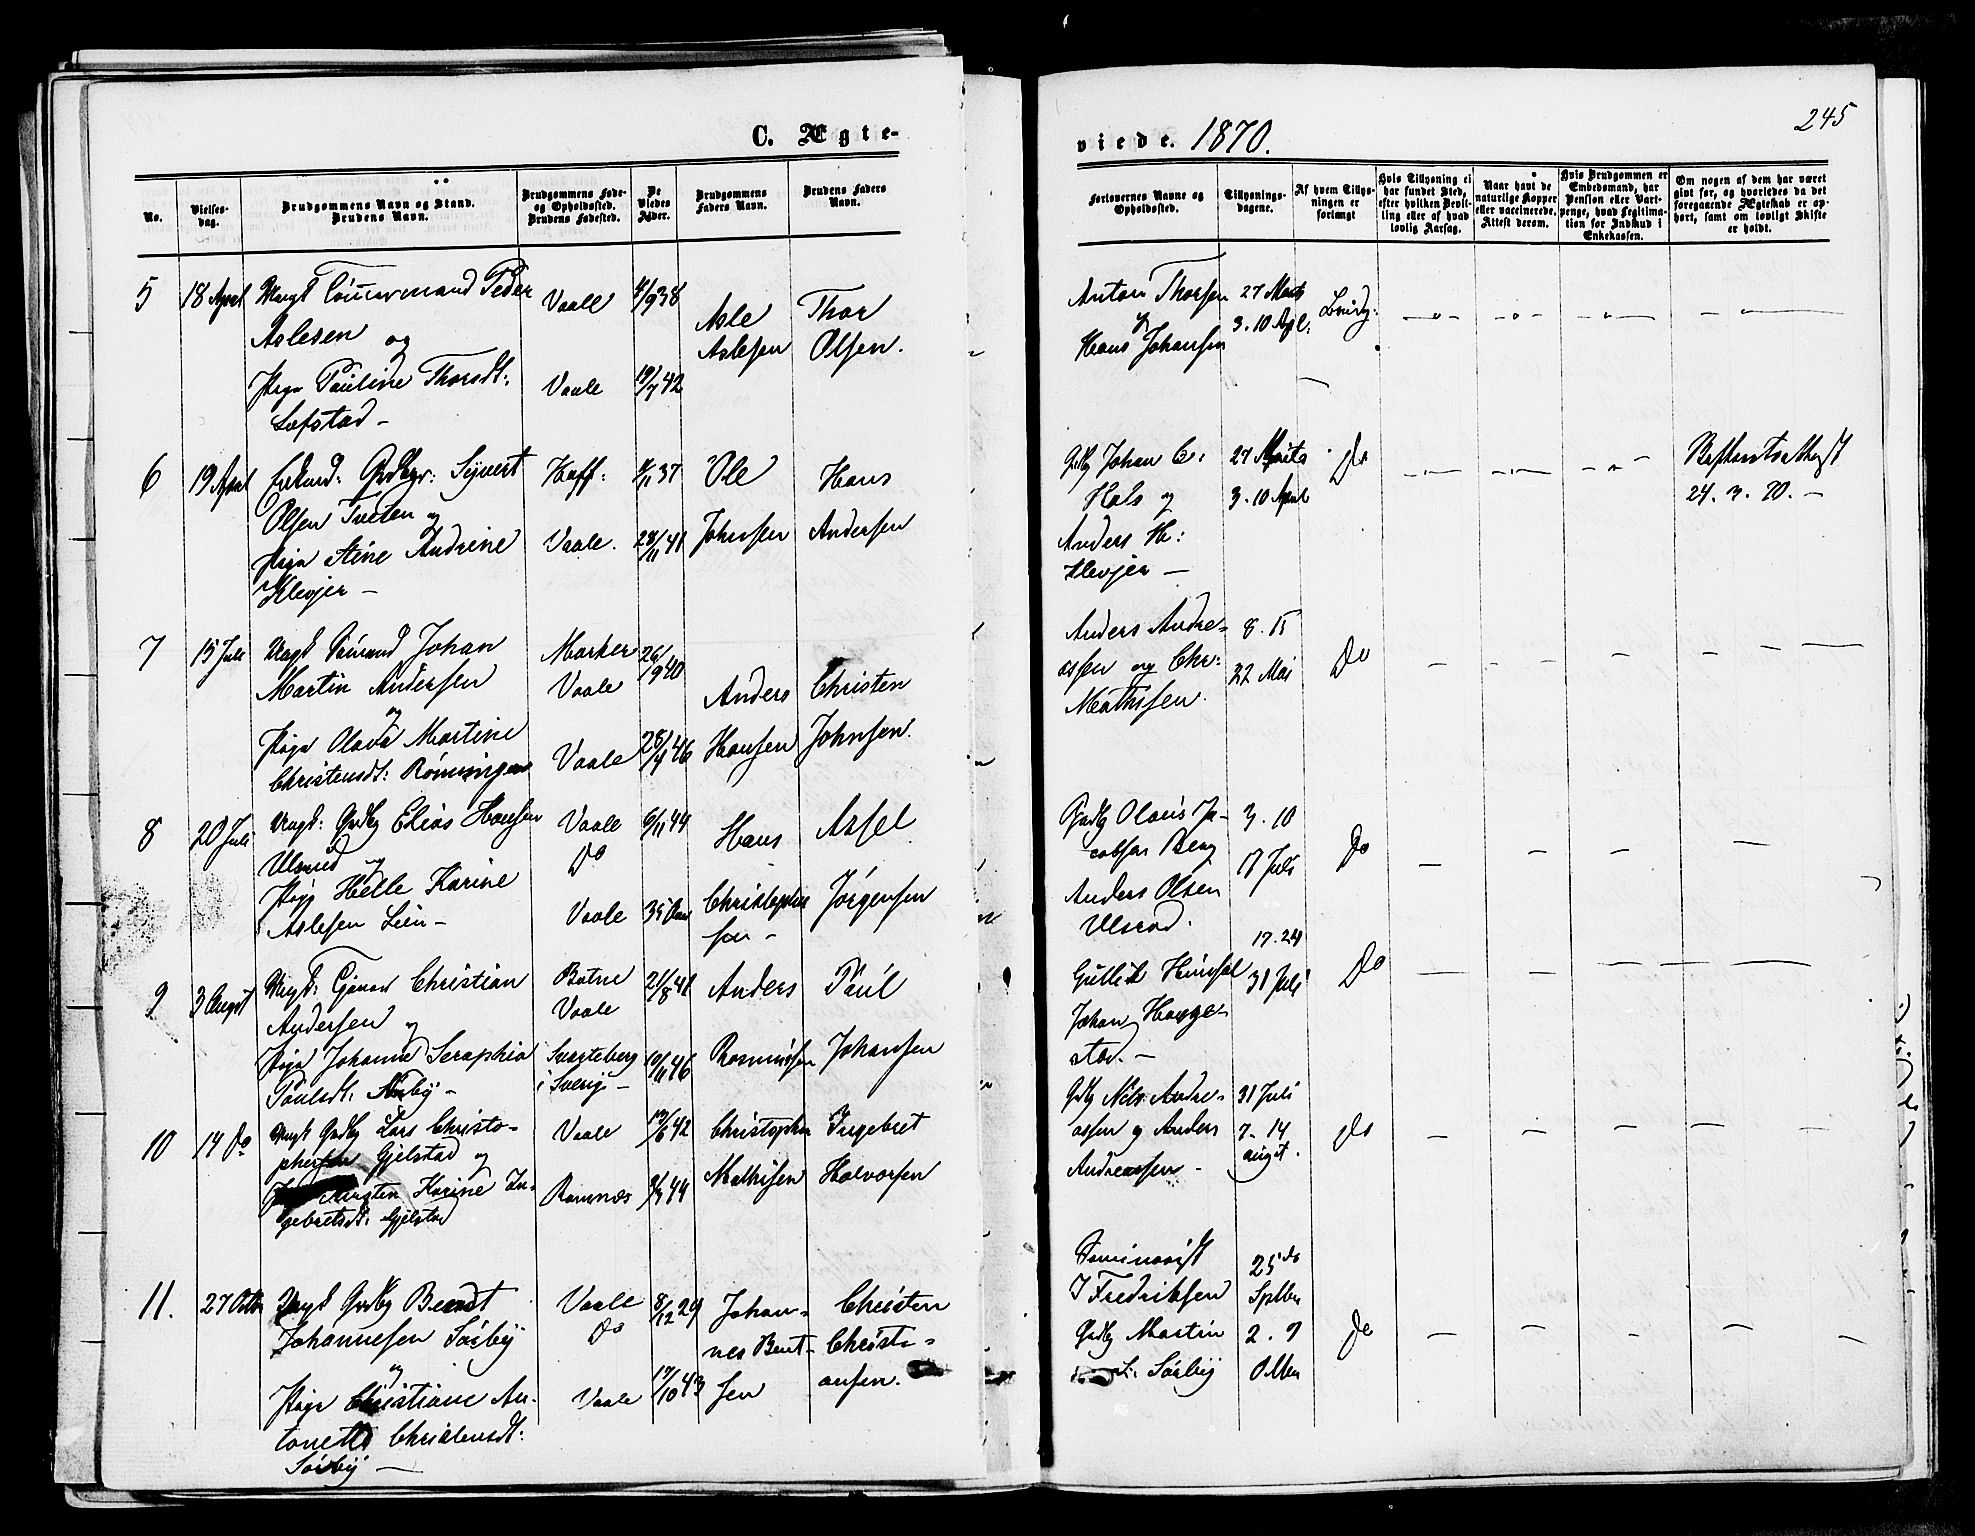 245
C. Ægte-
viede. 1870.
No.
Vielses-
dag.
Brudgommens Navn og Stand.
Brudens Navn.
Brudgommens Føde-
og Opholdssted.
Brudens Fødested.
De
Viedes
Alder.
Brudgommens
Faders Navn.
Brudens Faders
Navn.
Forlovernes Navne og
Opholdssted.
Tillysnings-
dagene.
Af hvem Tillys-
ningen er
forlangt
Hvis Tillysning ei
har fundet Sted,
efter hvilken Bevil-
ling eller af hvad
lovlig Aarsag.
Naar havt de
naturlige Kopper
eller vaccinerede.
Attest derom.
Hvis Brudgommen er
Embedsmand, har
Pension eller Vart-
penge, hvad Legitima-
tion for Indskud i
Enkekassen.
Om nogen af dem har været
gift før, og hvorledes da det
foregaaende Ægteskab er op-
hørt, samt om lovligt Skifte
er holdt.
5
18 April
Ungk Tømmermand Peder
Aslesen og
Pige Pauline Thorsdt:
Lefstad -
Vaale
Vaale
4/9 38
19/7 42
Asle
Aslesen
Thor
Olsen.
Anton Thorsen
&
Hans Johansen
27 Marts
3. 10 Apl.
6
19 April
Enkmd: Grdbgr: Syvert
Olsen Tveten og
Pige Stine Andrine
Klevjer -
Hoff:
Vaale.
4/11 37
28/11 41
Ole
Johnsen
Hans
Andersen
Grdbg Johan C:
Hals og
Anders H:
Klevjer -
27 Marts
3. 10 April
Do
Skifteretsattest
24. 3. 70. -
7
15 Juli
Ungk Sømand Johan
Martin Andersen
og
Pige Olava Martine
Christensdt: Rønningen
Marker
Vaale
Vaale
26/9 40
28/4 46
Anders
Hansen
Christen
Johnsen.
Anders Andre-
assen og Chr:
Mathisen.
8. 15
22 Mai
Do
8
20 Juli
Ungk: Grdbg Elias Hansen
Ulsrud og
Pige Helle Karine
Aslesen Lien -
Vaale
Do
Vaale
6/11 44
35 Aar
Hans
Christopher
sen -
Assel
Jörgensen
Grdbg Olaus Ja-
cobsen Berg
Anders Olsen
Ulsrod.
3. 10
17 Juli
Do
9
3 August
Ungk: Christian
Andersen og
Pige Johanne Seraphia
Paulsdt: Nøby -
Botne
Vaale
Svarteborg
i Sverige -
21/8 41
10/11 46
Anders
Rasmussen
Paul
Johansen
Gullik Himsal
Johan Hauge-
stad. -
17. 24
31 Juli
Do
10
14 Do
Ungk Grdbg Lars Christo-
phersen Gjelstad og
Kirsten Karine In-
gebretsdt: Gjelstad
Vaale
Ramnæs
12/6 42
9/4 44
Christopher
Mathisen
Ingebret
Halvorsen
Grdbg Nils Andre-
assen og Anders
Andreassen -
31 Juli
7. 14
augst.
Do
11.
27 Octbr
Ungk Grdbg Berndt
Johannesen Sörby
og
Pige Christiane An-
tonette Christensdt:
Sörby -
Vaale
Do
Vaale
8/12 29
17/10 43
Johan-
nes Bent-
sen
Christen
Christi-
ansen.
Seminarist
J Fredriksen
Grdbg Martin
L: Sörby
25 de
Sptbr
2. 9
Octbr
Do